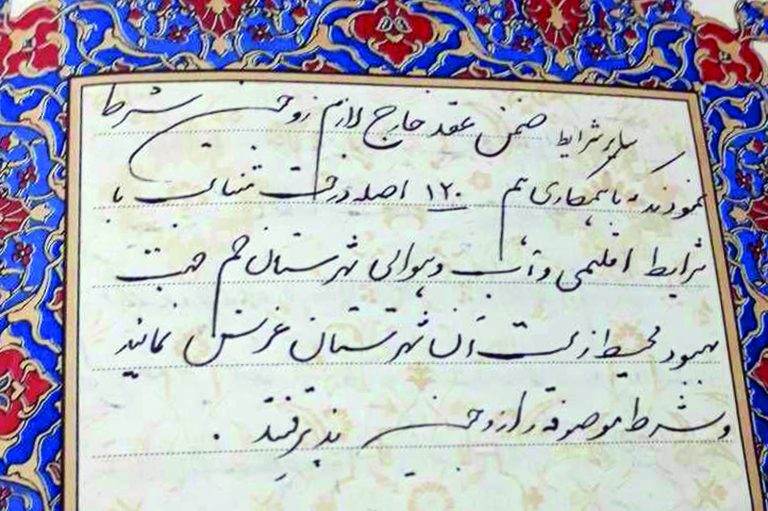 سایر شرایط ضمن عقد خارج لازم زوجین شرط
نمودند که با همکاری هم ۱۲۰ اصله درخت متناسب با
شرایط اقلیمی و آب و هوایی شهرستان خم جهت
بهبود محیط زیست آن شهرستان غرس نمایند
و شرط موصوف را زوجین پذیرفتند .